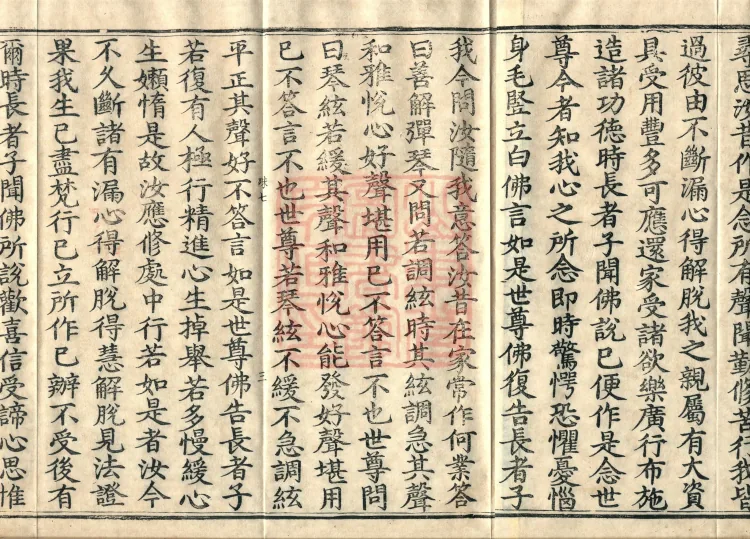 尋思從昔作是念所有聲聞勤脩苦行我皆
過彼由不斷漏心得解脫我之親屬有大資
具受用豐多可應還家受諸欲樂廣行布施
造諸功德時長者子聞佛說已便作是念世
尊今者知我心之所念即時驚愕恐懼憂惱
身毛豎立白佛言如是世尊佛復告長者子
我今問汝隨我意答汝昔在家常作何業答
曰善解彈琴又問若調絃時其絃調急其聲
和雅悅心好聲堪用已不答言不也世尊問
曰琴絃若緩其聲和雅悅心能發好聲堪用
已不答言不也世尊若琴絃不緩不急調絃
平正其聲好不答言如是世尊佛告長者子
若復有人極行精進心生掉舉若多慢緩心
生嬾惰是故汝應修處中行若如是者汝今
不久斷諸有漏心得解脫得慧解脫見法證
果我生已盡梵行已立所作已辦不受後有
爾時長者子聞佛所說歡喜信受諦心思惟
七
三